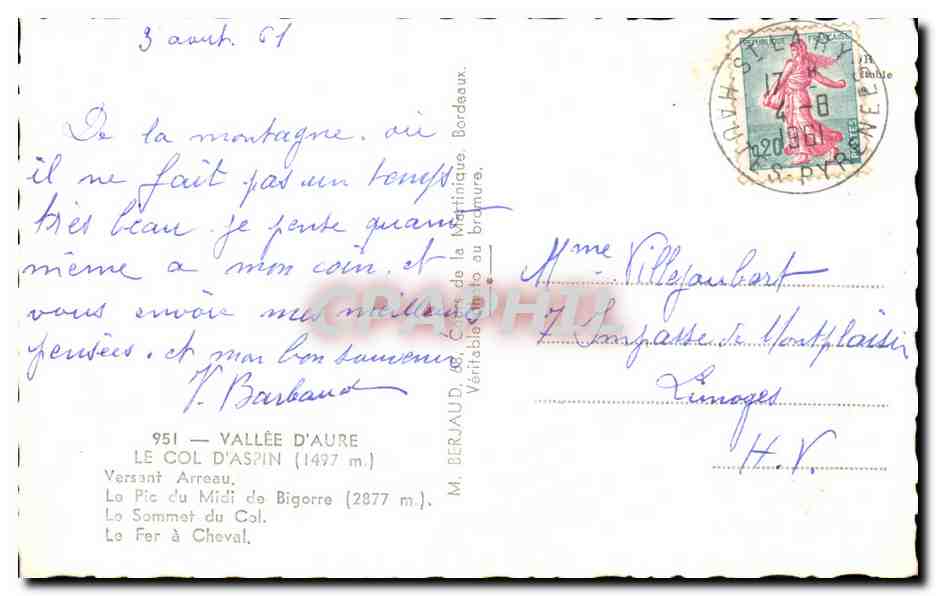 3 aout. 61
De la montagne. où
il ne fait pas un temps
très beau. je pense quant
même a mon coin. et
vous envoie mes meilleures
pensées. et mon bon souvenir
V. Barbaud
951 — VALLÉE D'AURE
LE COL D'ASPIN (1497 m.)
Versant Arreau.
Le Pic du Midi de Bigorre (2877 m.).
Le Sommet du Col.
Le Fer à Cheval.
M. BERJAUD, 68, Cours de la Martinique, Bordeaux.
Véritable photo au bromure.
CPARAMA
REPUBLIQUE FRANÇAISE
0,20
POSTES
ST LARY
17 H
4 -8
1961
HAUTES PYRENEES
Mme Villejoubert
7 Impasse de Montplaisir
Limoges
H.V.